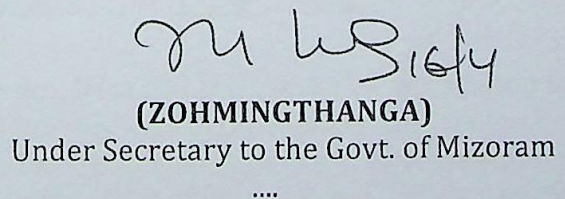 16/4
(ZOHMINGTHANGA)
Under Secretary to the Govt. of Mizoram
....